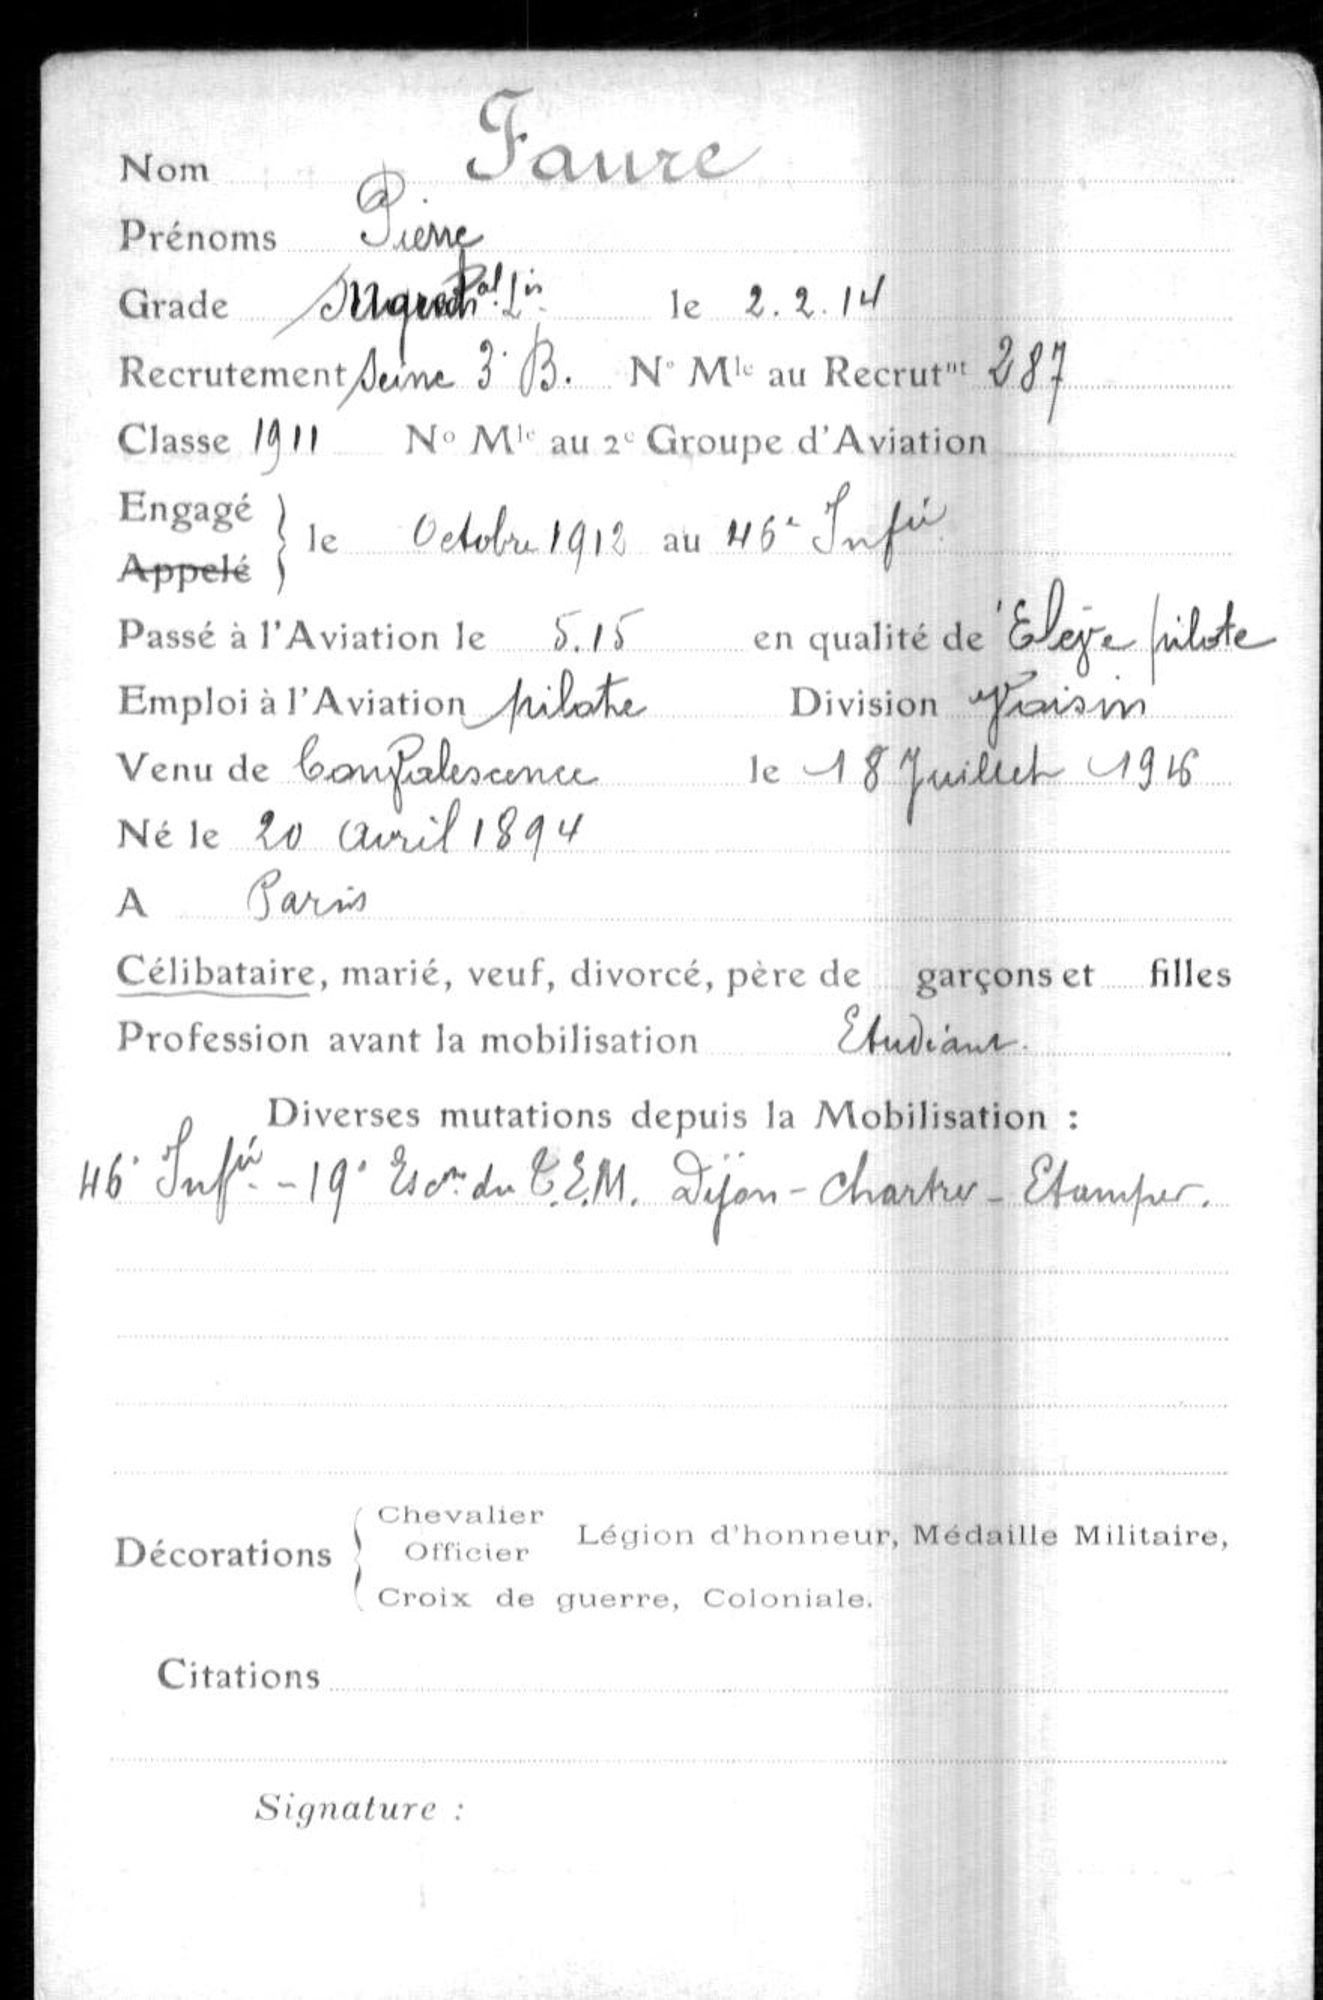 Nom Faure
Prénoms Pierre
Grade le 2.2.14
Recrutement Seine 3e B. No Mle au Recrutnt 287
Classe 1911 No Mle au 2e Groupe d'Aviation
Engagé
Appelé
le Octobre 1912 au 46e Infie
Passé à l'Aviation le 5.15 en qualité de Elève pilote
Emploi à l'Aviation pilote Division Voisin
Venu de Convalescence le 18 Juillet 1916
Né le 20 avril 1894
A Paris
Célibataire, marié, veuf, divorcé, père de garçons et filles
Profession avant la mobilisation Etudiant.
Diverses mutations depuis la Mobilisation :
46e Infie - 19e Escon du T.E.M. Dijon - Chartres - Etampes.
Chevalier
Officier
Légion d'honneur, Médaille Militaire,
Décorations
Croix de guerre, Coloniale.
Citations
Signature :